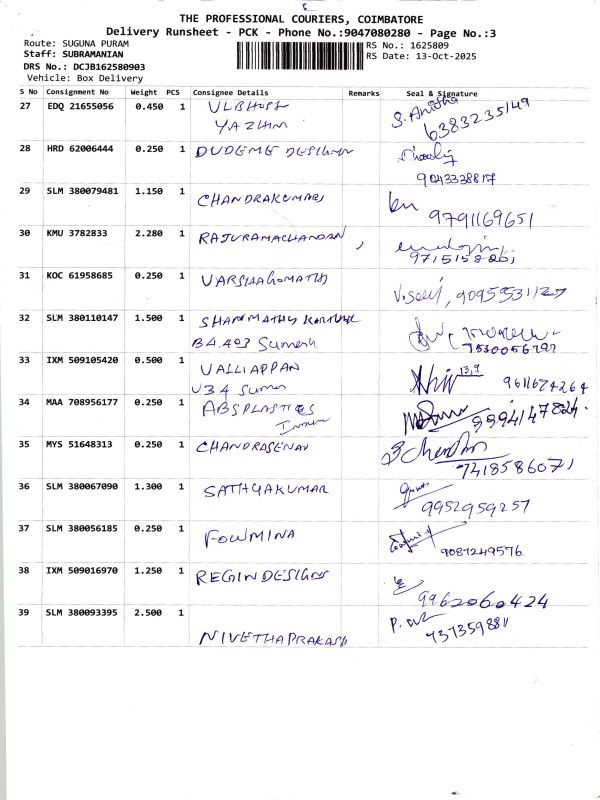 THE PROFESSIONAL COURIERS, COIMBATORE
Delivery Runsheet - PCK - Phone No.:9047080280 - Page No.:3
Route: SUGUNA PURAM RS No.: 1625809
Staff: SUBRAMANIAN RS Date: 13-Oct-2025
DRS No.: DCJB162580903
Vehicle: Box Delivery
S No Consignment No Weight PCS Consignee Details Remarks Seal & Signature
27 EDQ 21655056 0.450 1 S. Anitha
YAZHINI 6383235149
28 HRD 62006444 0.250 1 DUDEME DESIGNER
9043338817
29 SLM 380079481 1.150 1 CHANDRAKUMAR
9791169651
30 KMU 3782833 2.280 1 RAJURAMACHANDRAN
31 KOC 61958685 0.250 1 VARSHAGOMATHY
9095531127
32 SLM 380110147 1.500 1 SHANMATHY
B4.403
33 IXM 509105420 0.500 1 VALLIAPPAN
U34 9611674264
34 MAA 708956177 0.250 1 ABSPLASTICS
9994147824
35 MYS 51648313 0.250 1 CHANDRASENAN
7418586071
36 SLM 380067090 1.300 1 SATHYAKUMAR
9952959257
37 SLM 380056185 0.250 1 FOWMINA
9087249576
38 IXM 509016970 1.250 1 REGINDESIGNS
9962060424
39 SLM 380093395 2.500 1
NIVETHAPRAKASH